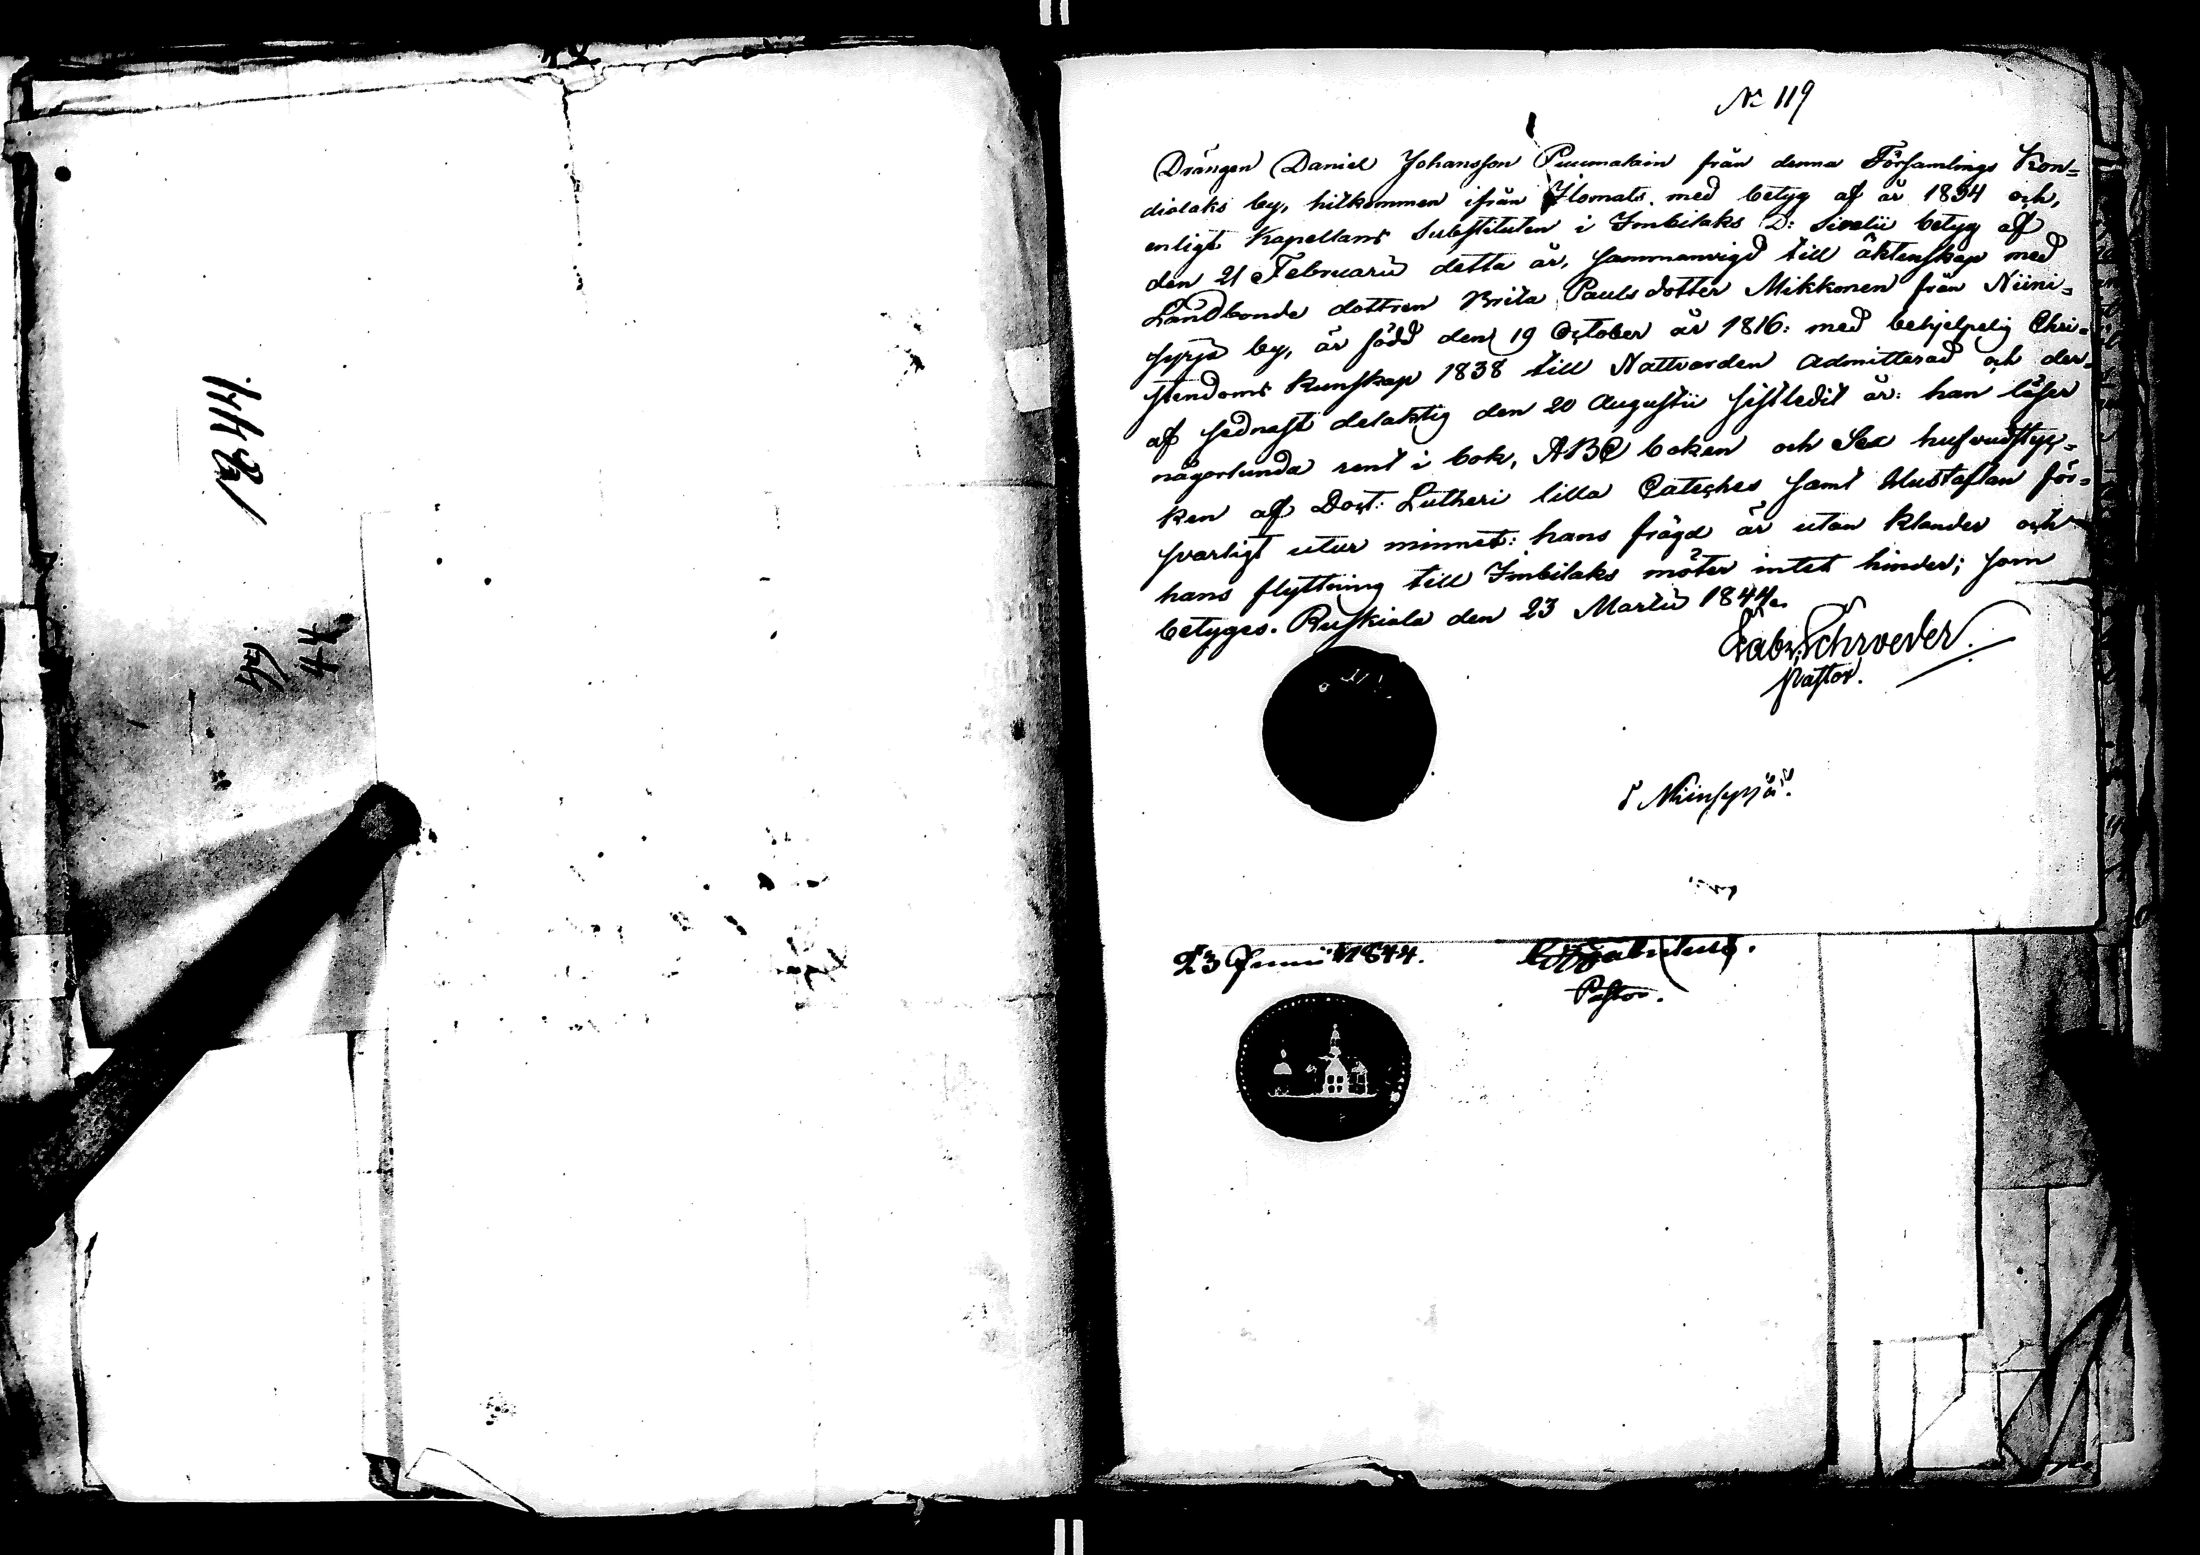 № 119
Drängen Daniel Johansson Puumalain från denna Församlings Kon=
dialaks by, hitkommen ifrån Ilomats med betyg af år 1834 och,
enligt Kapellans Substituten i Imbilaks D: Sirelii betyg af
den 21 Februarii detta år, sammanvigd till äktenskap med
Landbonde dottren Brita Pauls dotter Mikkonen från Niini=
syrja by, är född den 19 October år 1816: med behjelpelig Chri=
stendoms kunskap 1838 till Nattvarden admitterad och der=
af sednast delaktig den 20 Augustii sistledit år: han läser
någorlunda rent i bok, ABC boken och Sex hufvudstyc=
ken af Doct: Lutheri lilla Cateches samt Hustaflan för=
svarligt utur minnet: hans frägd är utan klander och
hans flyttning till Imbilaks möter intet hinder; som
betyges. Ruskiala den 23 Martii 1844.
Gabr. Schroeder.
Pastor.
Niinsyrjä.
23 Junii 1844.
Pastor.
44